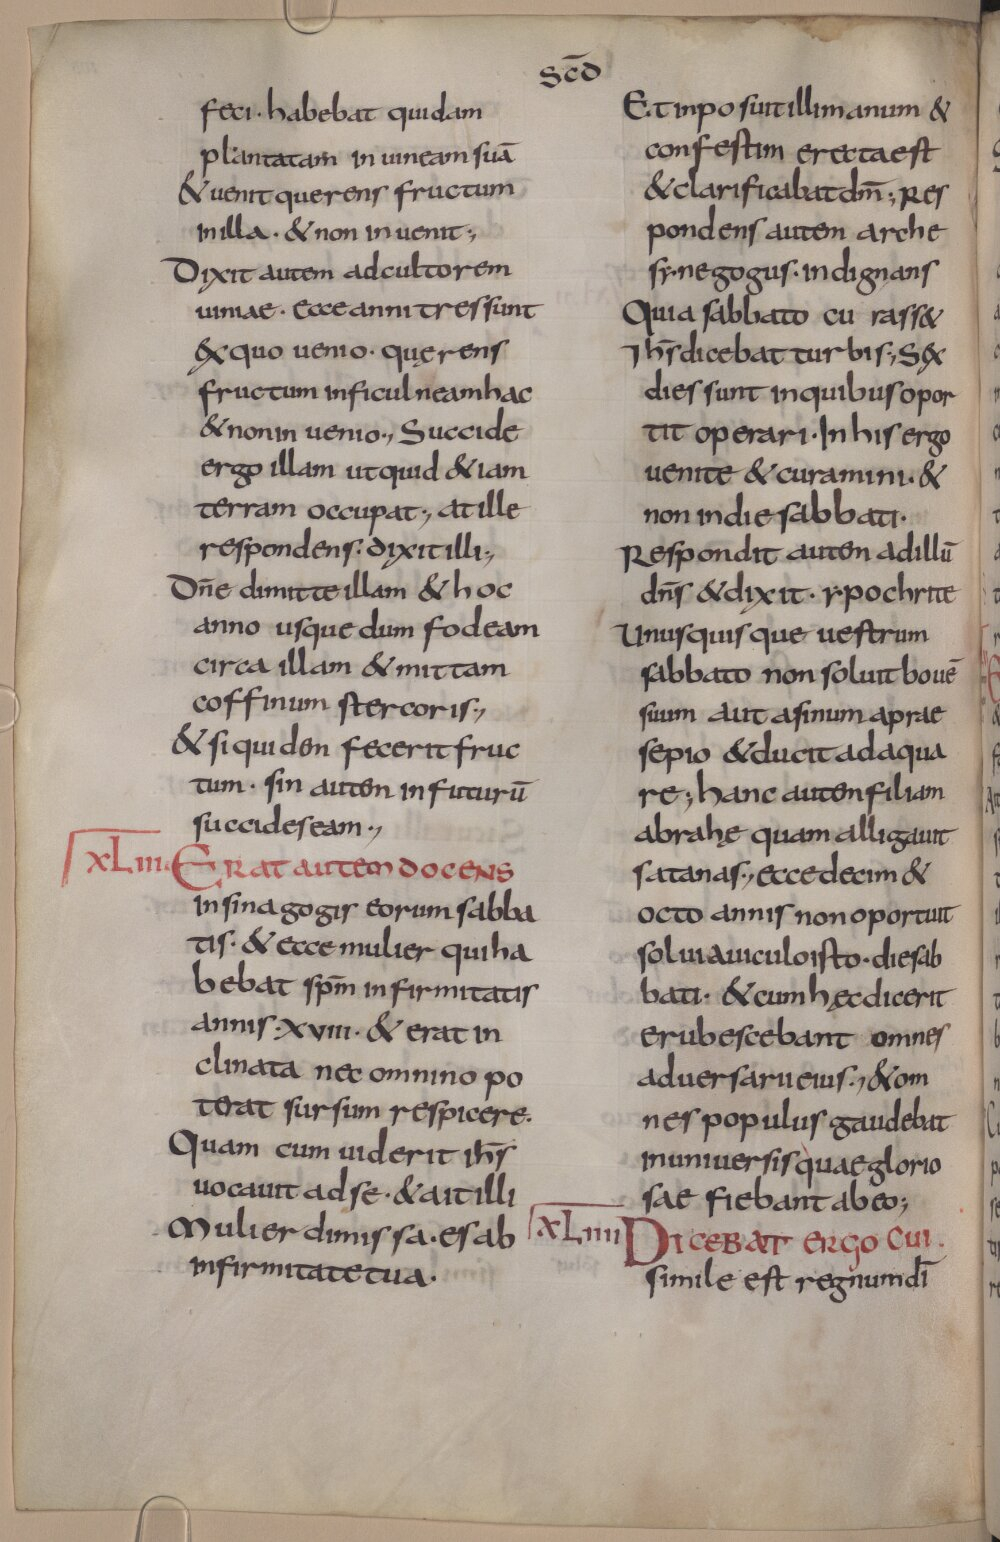 scd̄
feci· habebat quidam
plantatam in uineam suā
& uenit querens fructum
in illa· & non in uenit·,
Dixit autem ad cultorem
uiniae· ecce anni tres sunt
ex quo uenio· querens
fructum in ficulneam hac
& non in uenio·, Succide
ergo illam ut quid & iam
terram occupat·, at ille
respondens· dixit illi·,
Dn̄e dimitte illam & hoc
anno usque dum fodeam
circa illam & mittam
coffinum stercoris·,
& si quidem fecerit fruc
tum· sin autem in futurū
succides eam·,
XLIII Erat autem docens
in sinagogis eorum sabba
tis· & ecce mulier qui ha
bebat sp̄m infirmitatis
annis· xviii· & erat in
clinata nec omnino po
terat sursum respicere·
Quam cum uiderit ih̄s
uocauit ad se· & ait illi
Mulier dimissa· es ab
infirmitate tua·
Et inposuit illi manum &
confestim erecta est
& clarificabat dm̄·, Res
pondens autem arche
sy·negogus· indignans
Quia sabbato cu rass&
Ih̄s dicebat turbis·, Sex
dies sunt in quibus opor
tit operari· In his ergo
uenite & curamini· &
non in die sabbati·
Respondit autem ad illū
dn̄s & dixit· ypochrite
Unusquisque uestrum
sabbato non soluit bouē
suum aut asinum a prae
sepio & ducit ad aqua
re·, hanc autem filiam
abrahę quam alligauit
satanas·, ecce decim &
octo annis non oportuit
solui a uiculo isto· die sab
bati· & cum hęc dicerit
erubescebant omnes
aduersarii eius·, & om
nes populus gaudebat
in uniuersis quae glorio
sae fiebant ab eo·,
XLIIII Dicebat ergo cui·
simile est regnum dī